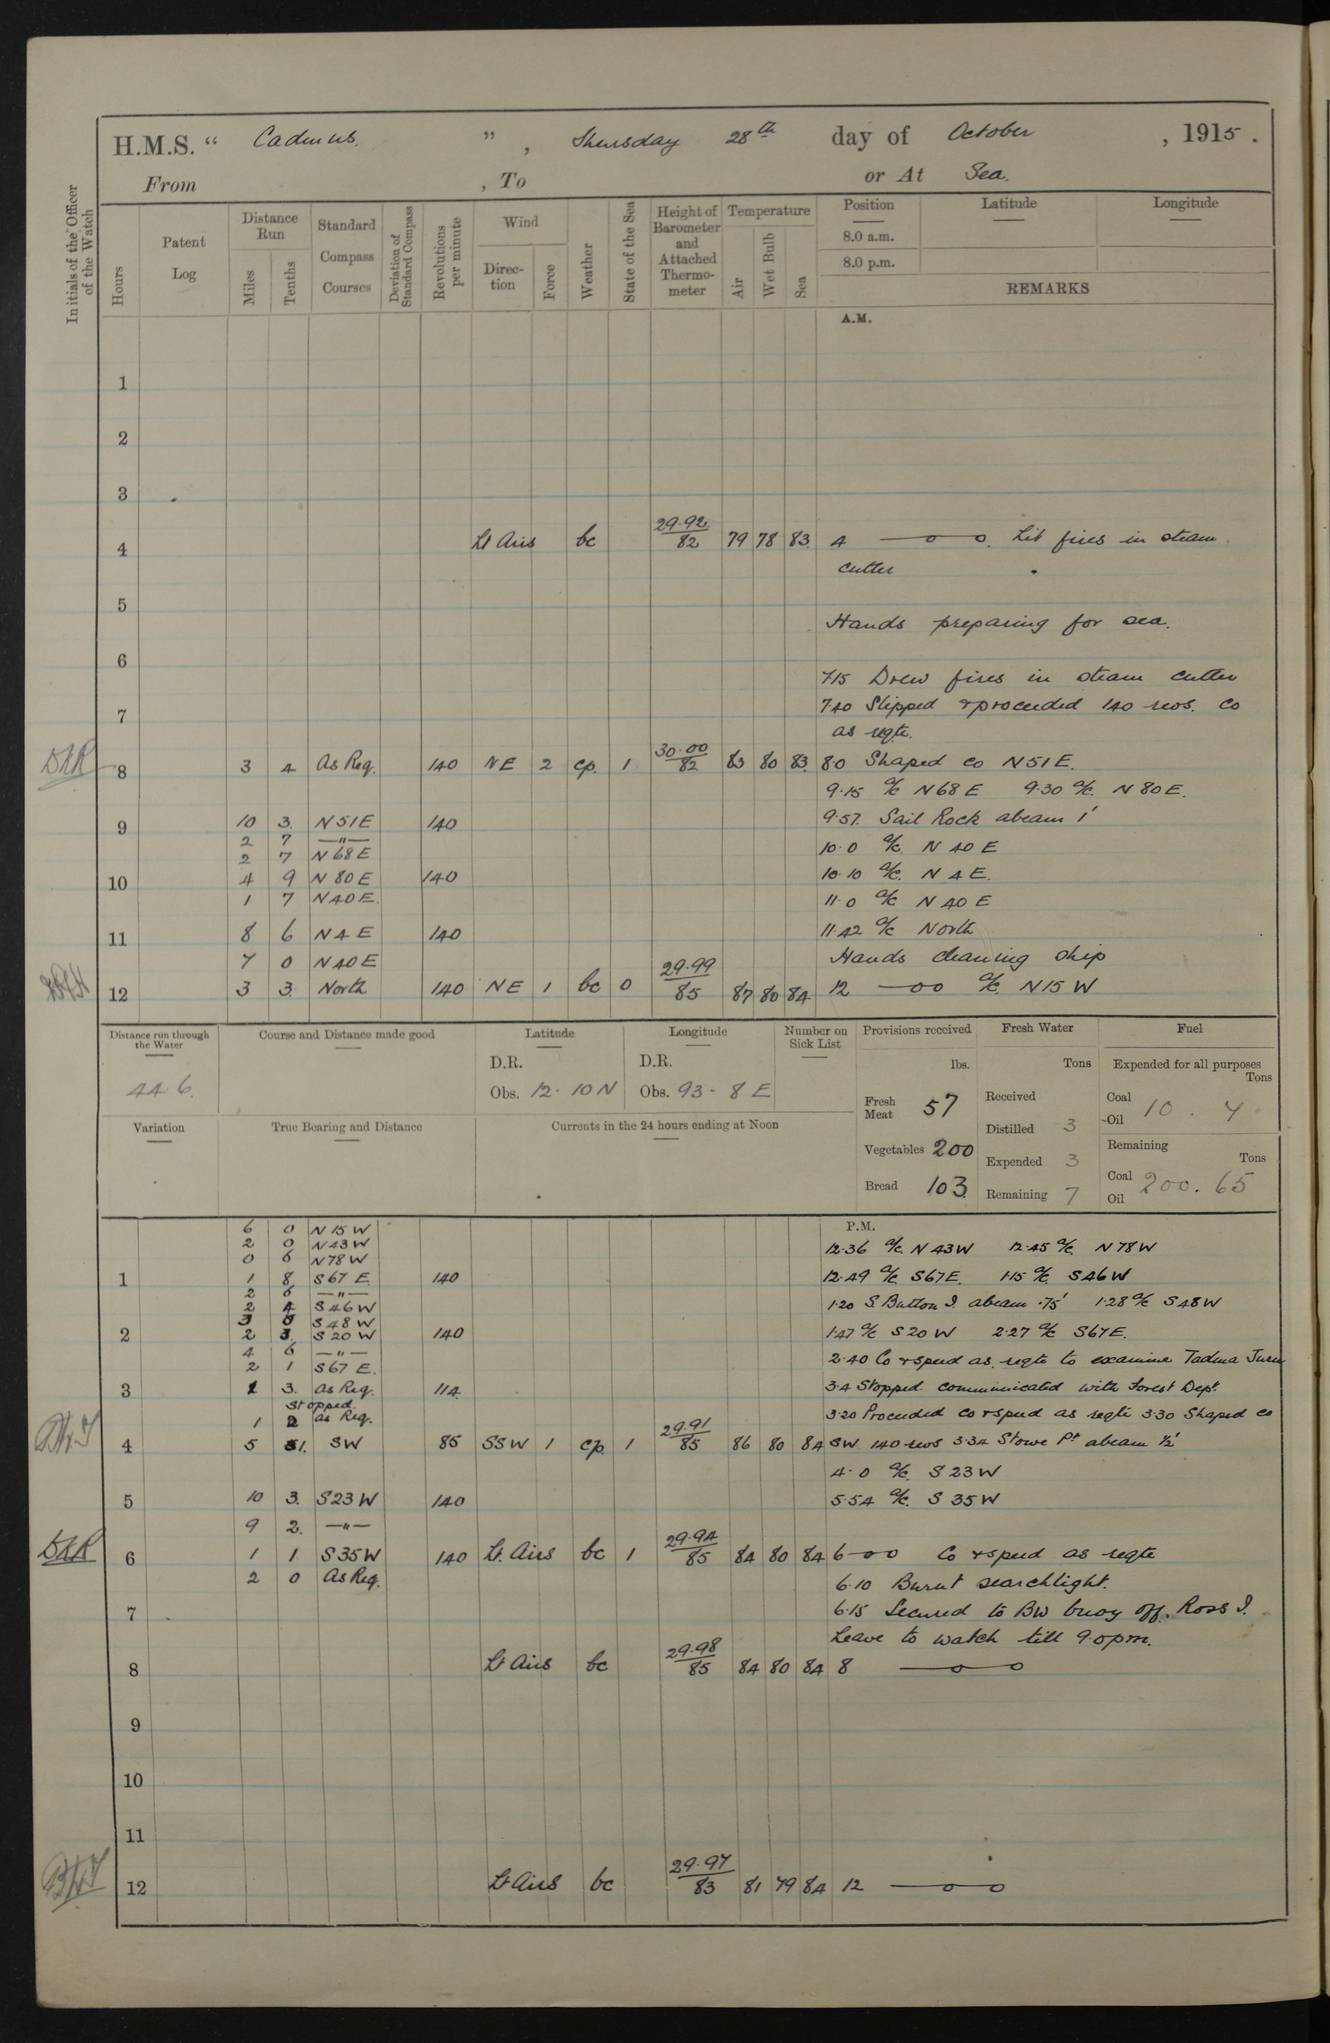 H.M.S. " Cadmus. ", Thursday 28th day of October, 1915.
From , To or At Sea.
Initials of the Officer of the Watch
Hours
Patent Log
Distance Run
Miles
Tenths
Standard Compass Courses
Deviation of Standard Compass
Revolutions per minute
Wind
Direction
Force
Weather
State of the Sea
Height of Barometer and Attached Thermometer
Temperature
Air
Wet Bulb
Sea
Position Latitude Longitude
8.0 a.m.
8.0 p.m.
REMARKS
A.M.
1
2
3
4 Lt Airs bc 29.92/82 79 78 83 4 —o—o. Lit fires in steam
cutter
5
Hands preparing for sea.
6
7.15 Drew fires in steam cutter
7 7.40 Slipped & proceeded 140 revs. Co
as reqte.
8 3 4 As Req. 140 NE 2 cp. 1 30.00/82 83 80 83. 8.0 Shaped Co N51E.
9.15 a/c N68E 9.30 a/c. N80E.
9 10 3. N51E 140 9.57. Sail Rock abeam 1'
2 7 —"—
2 7 N68E 10.0 a/c. N40E
10 4 9 N80E 140 10.10 a/c. N4E.
1 7 N40E. 11.0 a/c N40E
11 8 6 N4E 140 11.42 a/c North
7 0 N40E Hands cleaning ship
12 3 3. North 140 NE 1 bc 0 29.99/85 87 80 84 12 —oo a/c. N15W
Distance run through the Water
44.6.
Course and Distance made good
Latitude
D.R.
Obs. 12.10N
Longitude
D.R.
Obs. 93.8E
Number on Sick List
Provisions received
lbs.
Fresh Meat 57
Vegetables 200
Bread 103
Fresh Water
Tons
Received
Distilled 3
Expended 3
Remaining 7
Fuel
Expended for all purposes
Tons
Coal
Oil 10.7
Remaining
Tons
Coal
Oil 200.65
Variation
True Bearing and Distance
Currents in the 24 hours ending at Noon
P.M.
6 0 N15W
2 0 N43W 12.36 a/c. N43W 12.45 a/c. N78W
0 6 N78W
1 1 8 S67E 140 12.49 a/c S67E. 1.15 a/c. S46W
2 6 —"—
2 4 S46W 1.20 S. Button I. abeam .75' 1.28 a/c S48W
3 S48W
2 2 3. S20W 140 1.47 a/c S20W 2.27 a/c S67E.
4 6 —"—
2 1 S67E. 2.40 Co & speed as reqte to examine Tadma Juru
3 1 3. As Req. 114 3.4 Stopped. communicated with Forest Dept.
Stopped.
1 2 as Req. 3.20 Proceeded co & speed as reqte 3.30 Shaped co
4 5 SW 85 SSW 1 cp. 1 29.91/85 86 80 84 SW 140 revs 3.34 Stowe Pt abeam ½'
4.0 a/c. S23W
5 10 3. S23W 140 5.54 a/c. S35W
9 2. —"—
DAR 6 1 1 S35W 140 Lt. Airs bc 1 29.94/85 84 80 84 6 —oo Co & speed as reqte
2 0 As Req. 6.10 Burnt searchlight.
7 6.15 Secured to BW buoy off Ross I.
Leave to watch till 9.0pm.
8 Lt Airs bc 29.98/85 84 80 84 8 —o—o
9
10
11
12 Lt Airs bc 29.97/83 81 79 84 12 —o—o